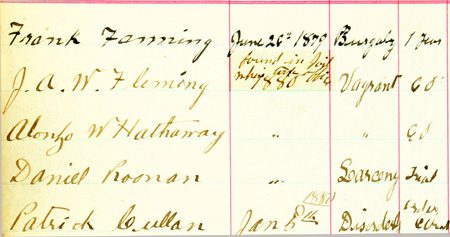 Frank Fanning June 20th 1879 Burgaly 1 Year
found in jail
J. A. W. Fleming when 1880 Vagrant 60
Alonzo W Hathaway " " 60
Daniel Roonan " Larceny Trial
1880
Patrick Cullan Jan 5th Disorderly